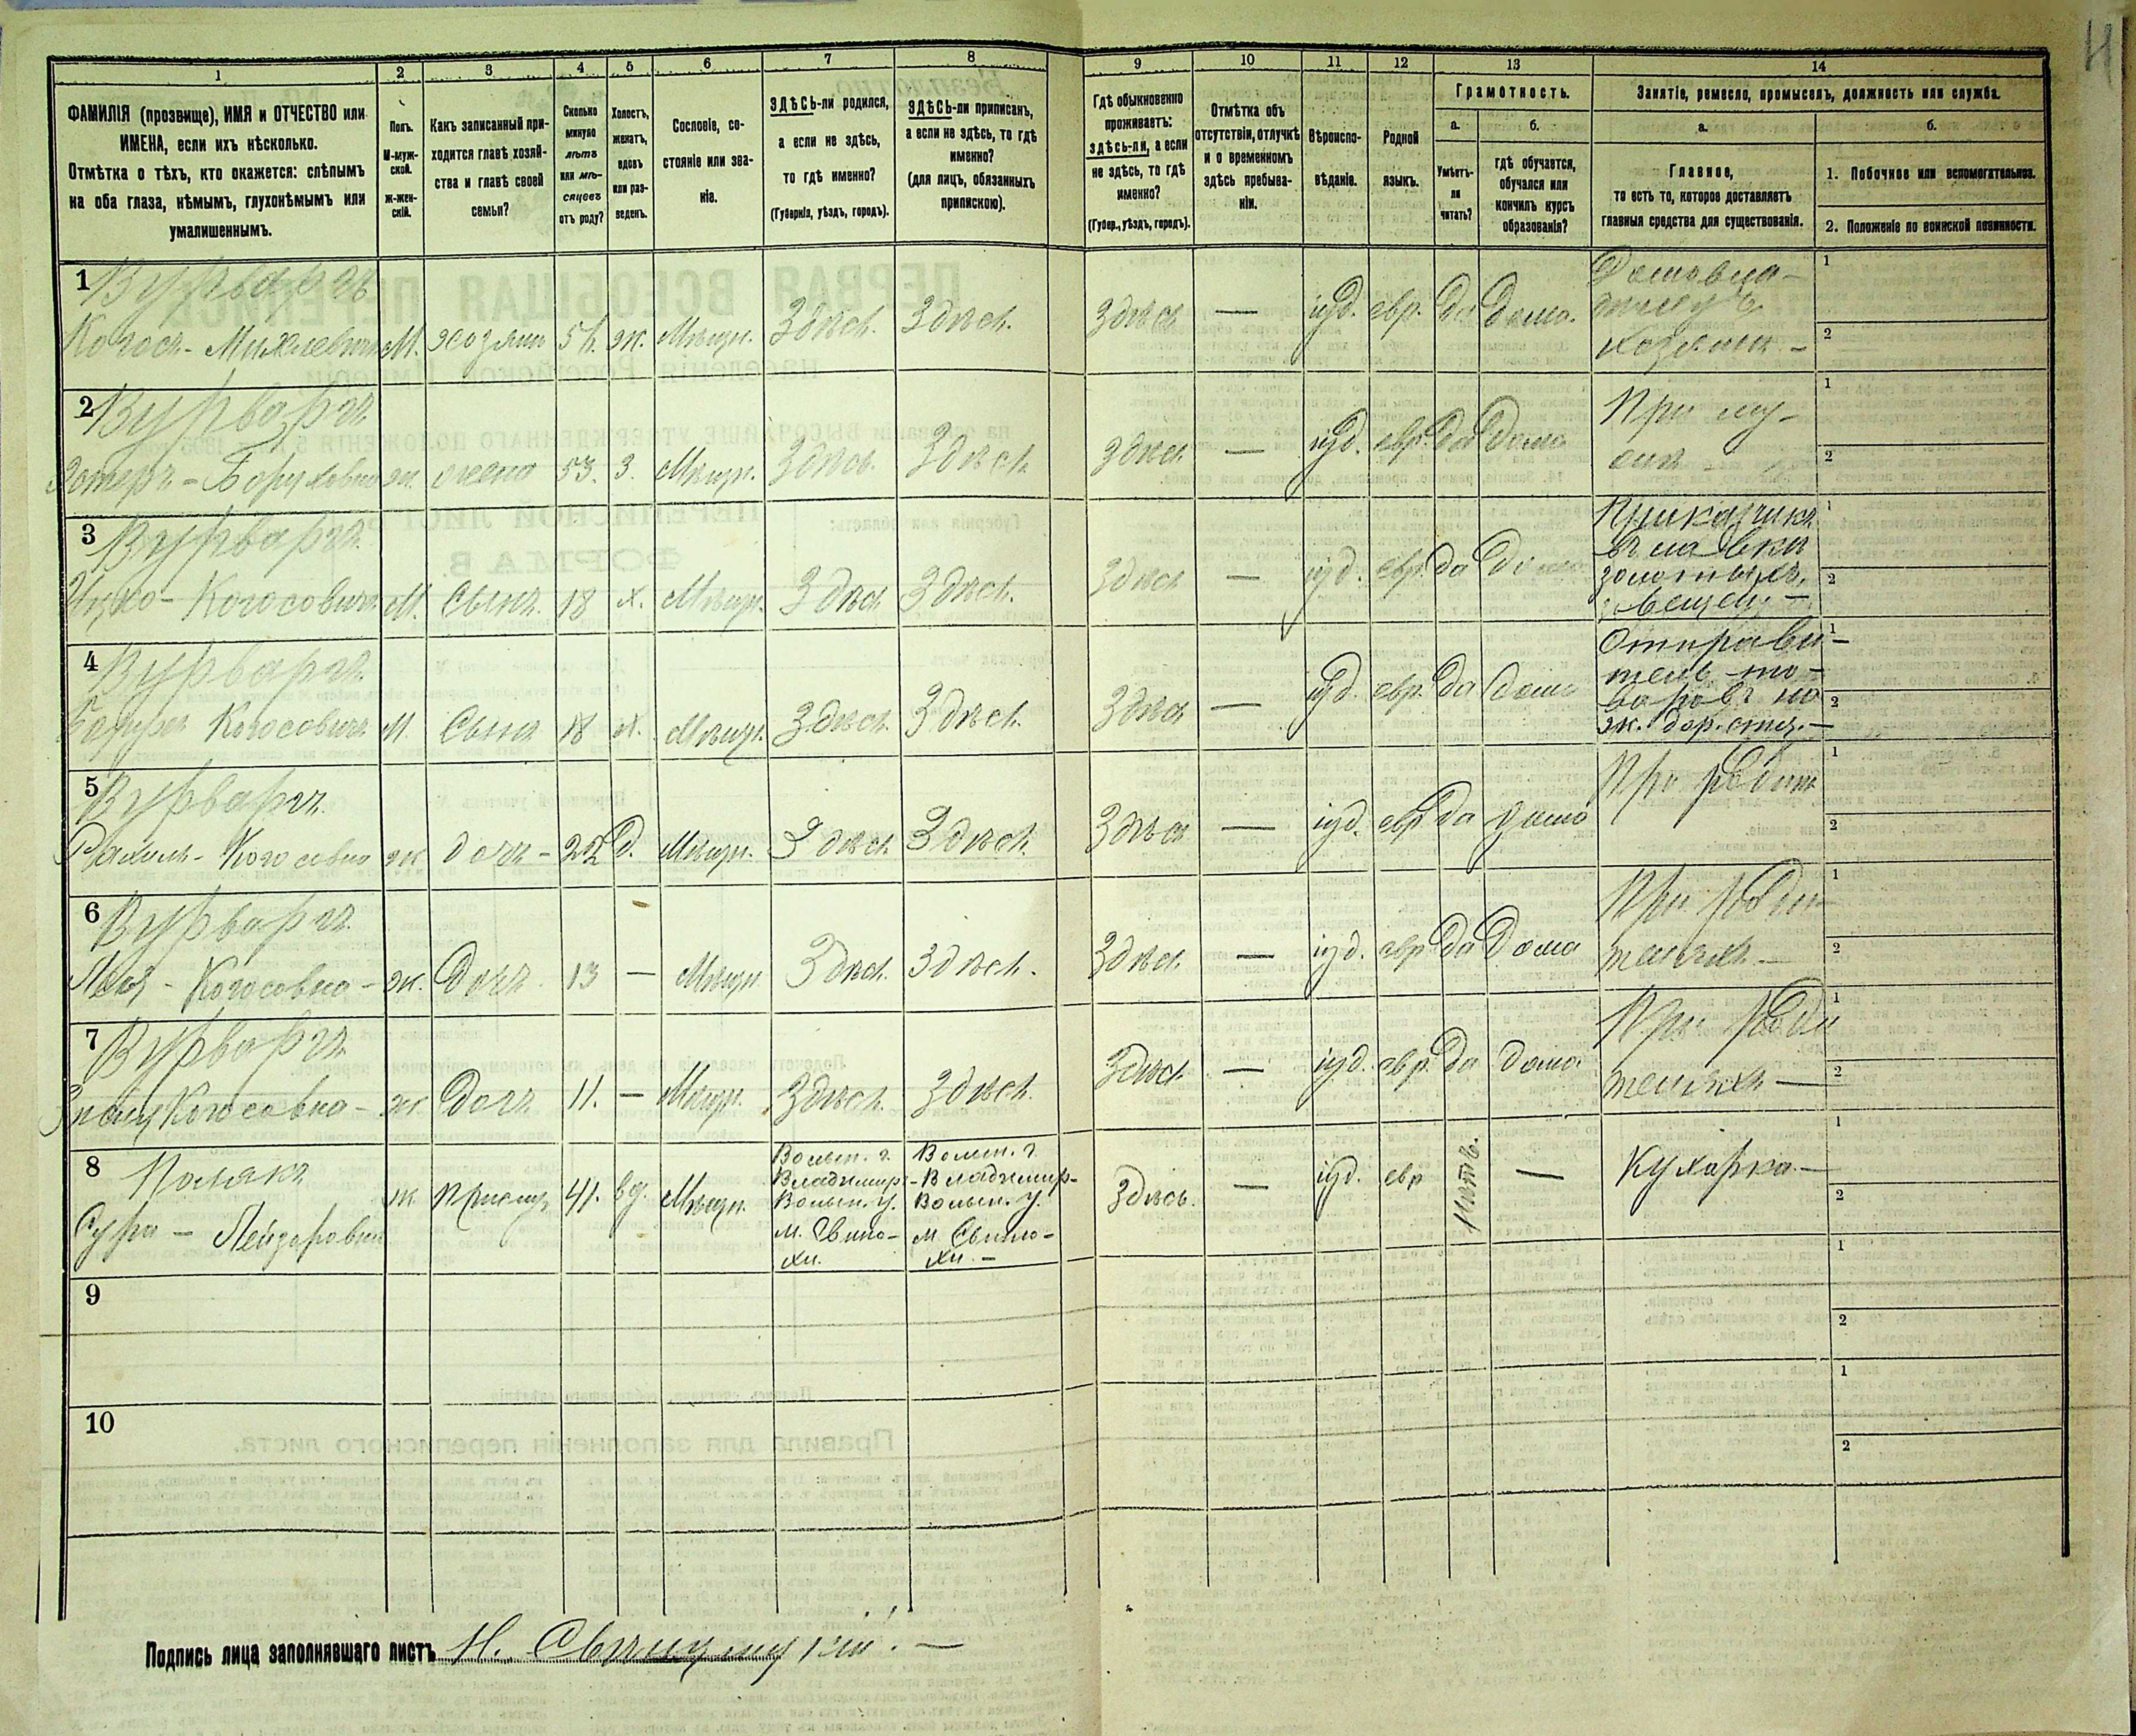 1 2 3 4 5 6 7 8 9 10 11 12 13 14
ФАМИЛІЯ (прозвище), ИМЯ и ОТЧЕСТВО или
ИМЕНА, если ихъ нѣсколько.
Отмѣтка о тѣхъ, кто окажется: слѣпымъ
на оба глаза, нѣмымъ, глухонѣмымъ или
умалишеннымъ.
Полъ.
М-муж-
ской.
ж-жен-
скій.
Какъ записанный при-
ходится главѣ хозяй-
ства и главѣ своей
семьи?
Сколько
минуло
лѣтъ
или мѣ-
сяцевъ
отъ роду?
Холостъ,
женатъ,
вдовъ
или раз-
веденъ.
Сословіе, со-
стояніе или зва-
ніе.
ЗДѢСЬ-ли родился,
а если не здѣсь,
то гдѣ именно?
(Губернія, уѣздъ, городъ).
ЗДѢСЬ-ли приписанъ,
а если не здѣсь, то гдѣ
именно?
(для лицъ, обязанныхъ
припискою).
Гдѣ обыкновенно
проживаетъ:
здѣсь-ли, а если
не здѣсь, то гдѣ
именно?
(Губер., уѣздъ, городъ).
Отмѣтка объ
отсутствіи, отлучкѣ
и о временномъ
здѣсь пребыва-
ніи.
Вѣроиспо-
вѣданіе.
Родной
языкъ.
Грамотность.
а.
Умѣетъ-
ли
читать?
б.
гдѣ обучается,
обучался или
кончилъ курсъ
образованія?
Занятіе, ремесло, промыселъ, должность или служба.
а.
Главное,
то есть то, которое доставляетъ
главныя средства для существованія.
б.
1. Побочное или вспомогательное.
2. Положеніе по воинской повинности.
1 Вурваргъ
М. хозяинъ ж. Мѣщн. Здѣсь. Здѣсь. Здѣсь — іуд. евр. да дома.
Домовла-
хозяинъ —
2 Вурваргъ
Эстеръ - Боруховна ж. жена 53. З. Мѣщн. Здѣсь. Здѣсь. Здѣсь — іуд. евр. да дома
При му-
жѣ —
3 Вурваргъ
Ицко - Когосовичъ М. Сынъ. 18 х. Мѣщн. Здѣсь Здѣсь. Здѣсь — іуд. евр. да дома
Приказчикъ
въ лавки
золотыхъ
вещей —
4 Вурваргъ
Когосовичъ М. Сынъ 18 х. Мѣщн. Здѣсь. Здѣсь. Здѣсь — іуд. евр. да дома
Отправи-
тель то-
варовъ на
ж. дор. стн. —
5 Вурваргъ
Рахиль - Когосовна ж дочь - 22 Д. Мѣщн. Здѣсь Здѣсь. Здѣсь — іуд. евр. да дома
При родит
6 Вурваргъ
Когосовна - ж. Дочь 13 — Мѣщн Здѣсь. Здѣсь. Здѣсь. — іуд. евр. да дома
При роди-
теляхъ —
7 Вурваргъ
Когосовна - ж. Дочь 11. — Мѣщн. Здѣсь. Здѣсь. Здѣсь — іуд. евр. да дома.
При роди
теляхъ —
8 Полякъ
Сура - Лейзеровна ж Прислуг 41. вд. Мѣщн.
Волын. г.
Владимир-
Волын. у.
м. Свино-
хи.
Волын. г.
Владимир-
Волын. у.
м. Свино-
хи. —
Здѣсь. — іуд. евр нѣтъ. — Кухарка —
9
10
Подпись лица заполнявшаго листъ